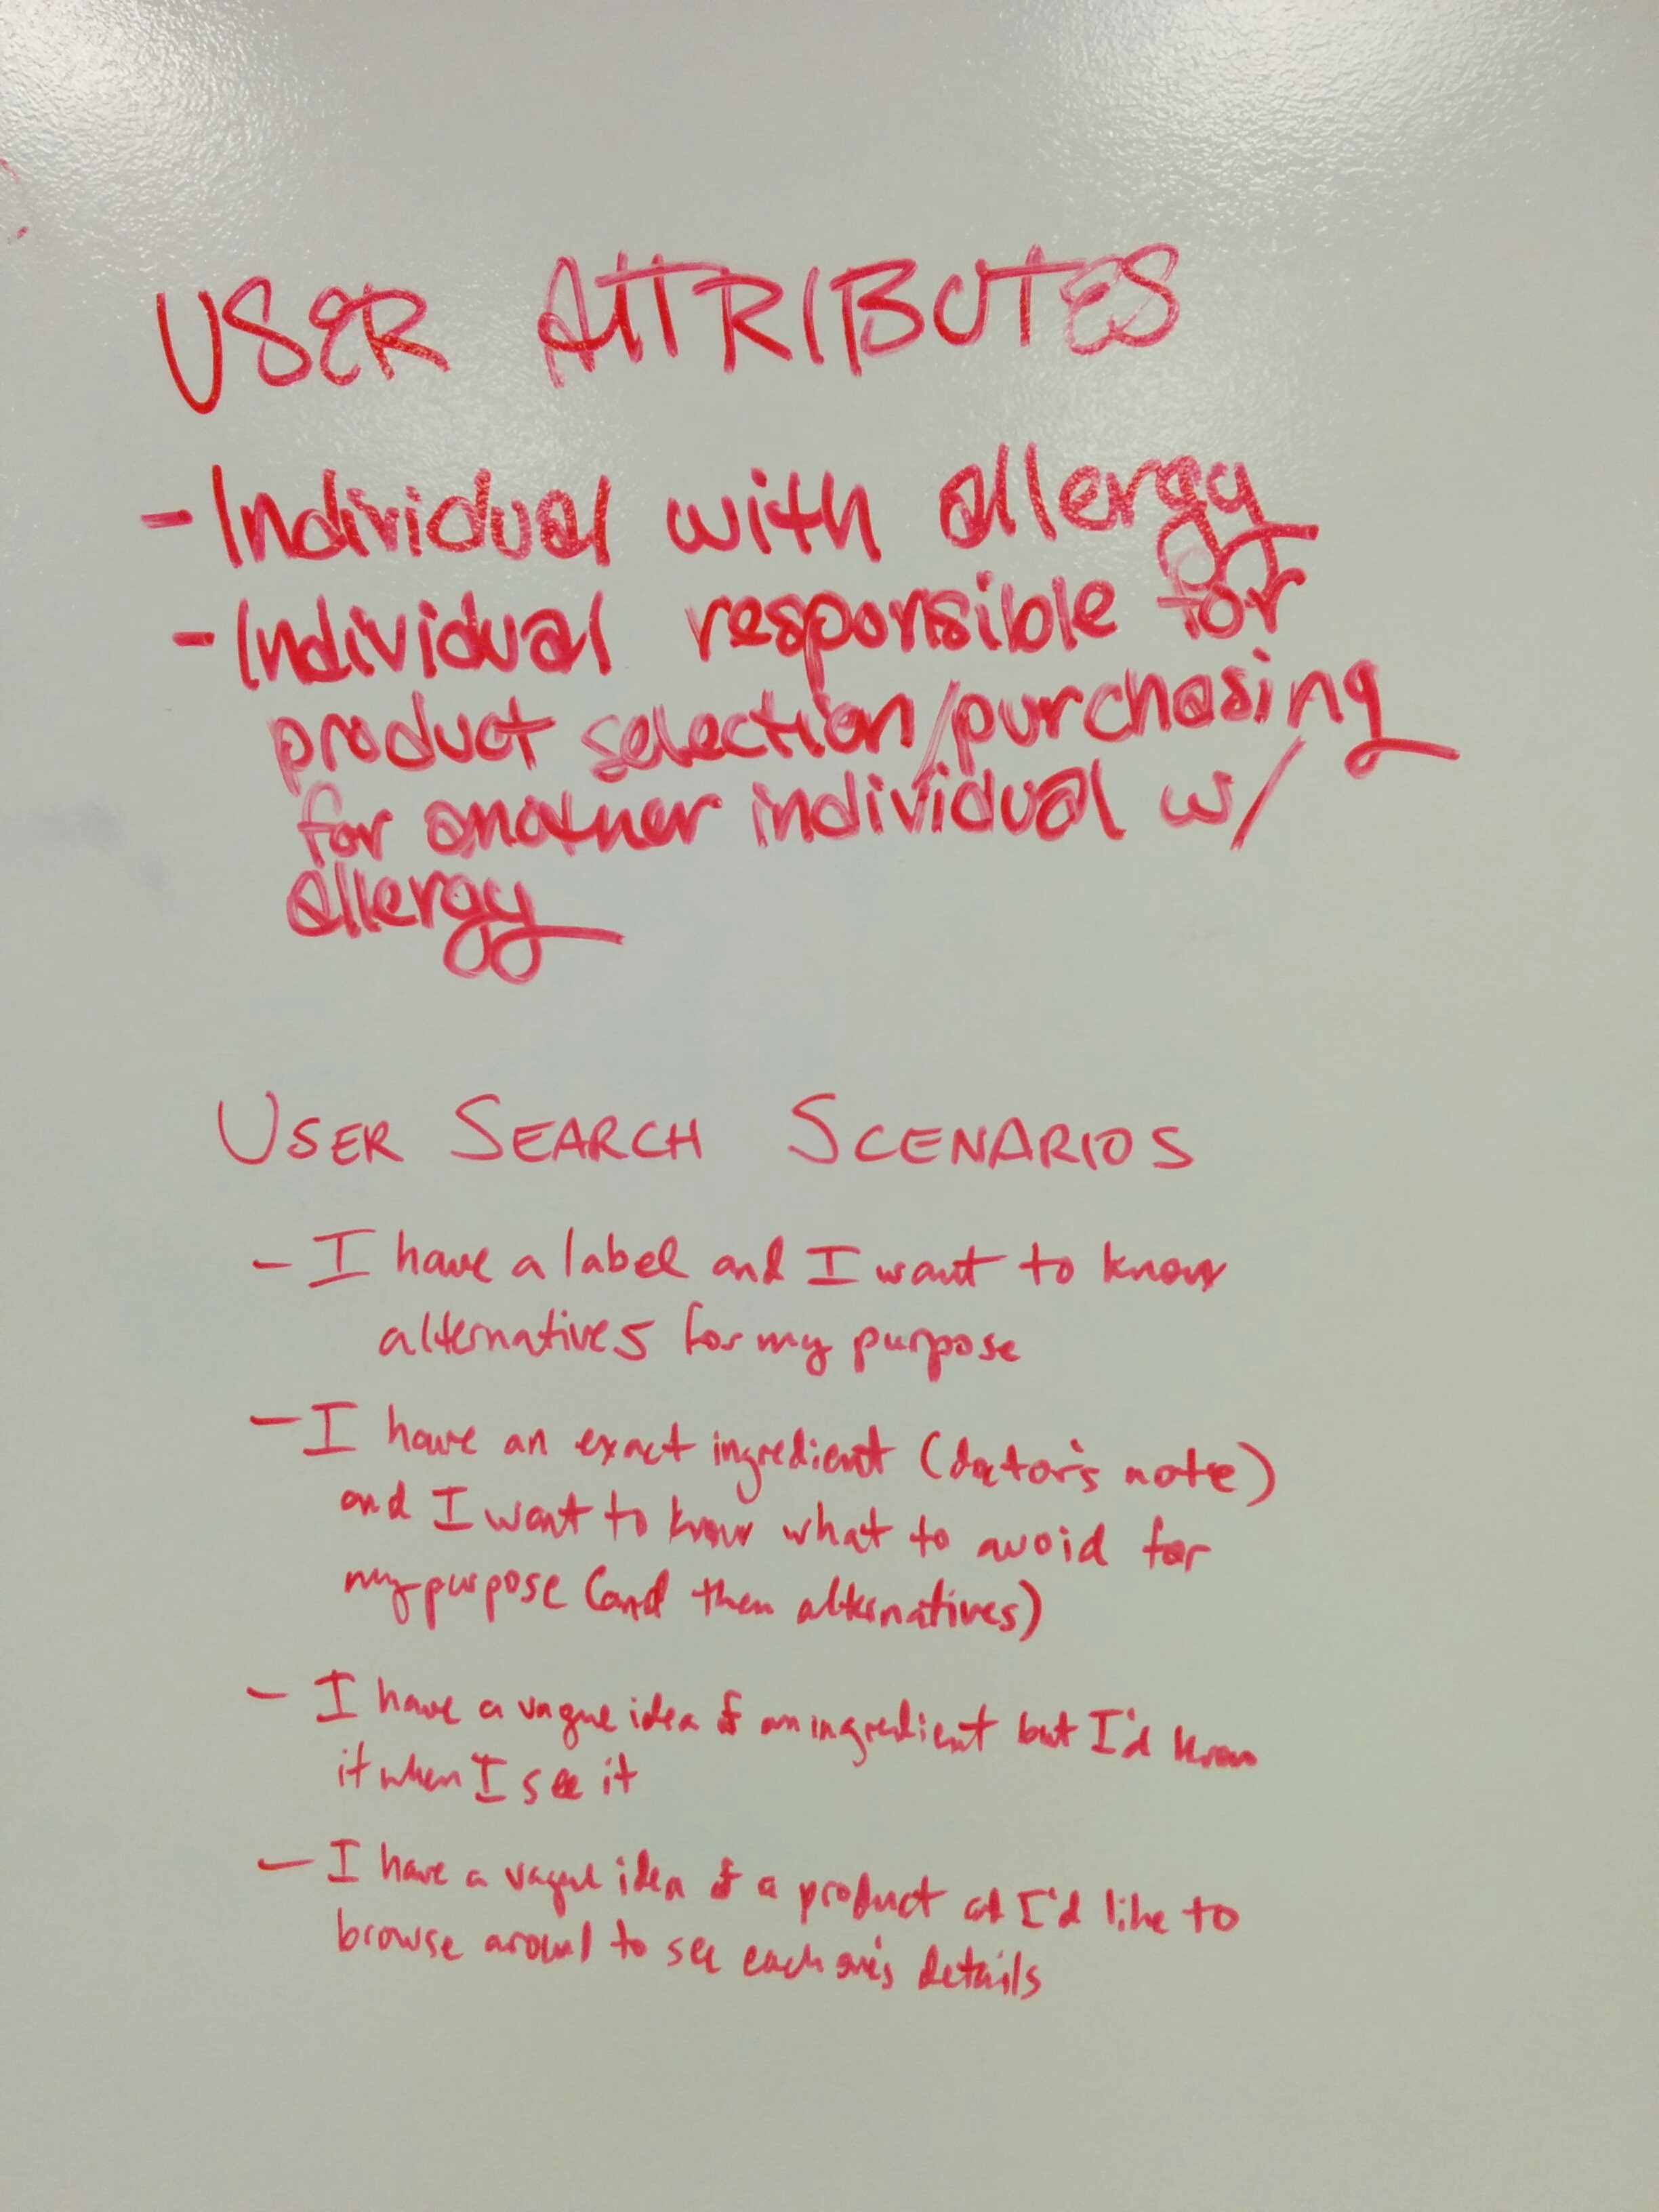 USER ATTRIBUTES
- Individual with allergy
- Individual responsible for
product selection/purchasing
for another individual w/
allergy
USER SEARCH SCENARIOS
- I have a label and I want to know
alternatives for my purpose
- I have an exact ingredient (doctor's note)
and I want to know what to avoid for
my purpose (and then alternatives)
- I have a vague idea of an ingredient but I'd know
it when I see it
- I have a vague idea of a product and I'd like to
browse around to see each one's details